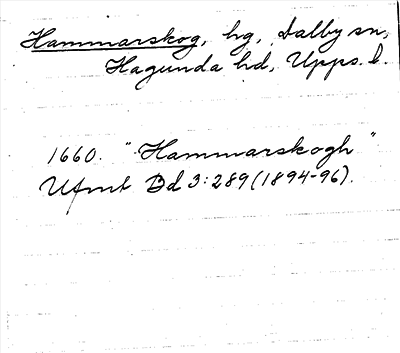 Hammarskog, hg, Dalby sn,
Hagunda hd, Upps. l.
1660. "Hammarskogh"
Ufmt Bd 3:289 (1894-96).